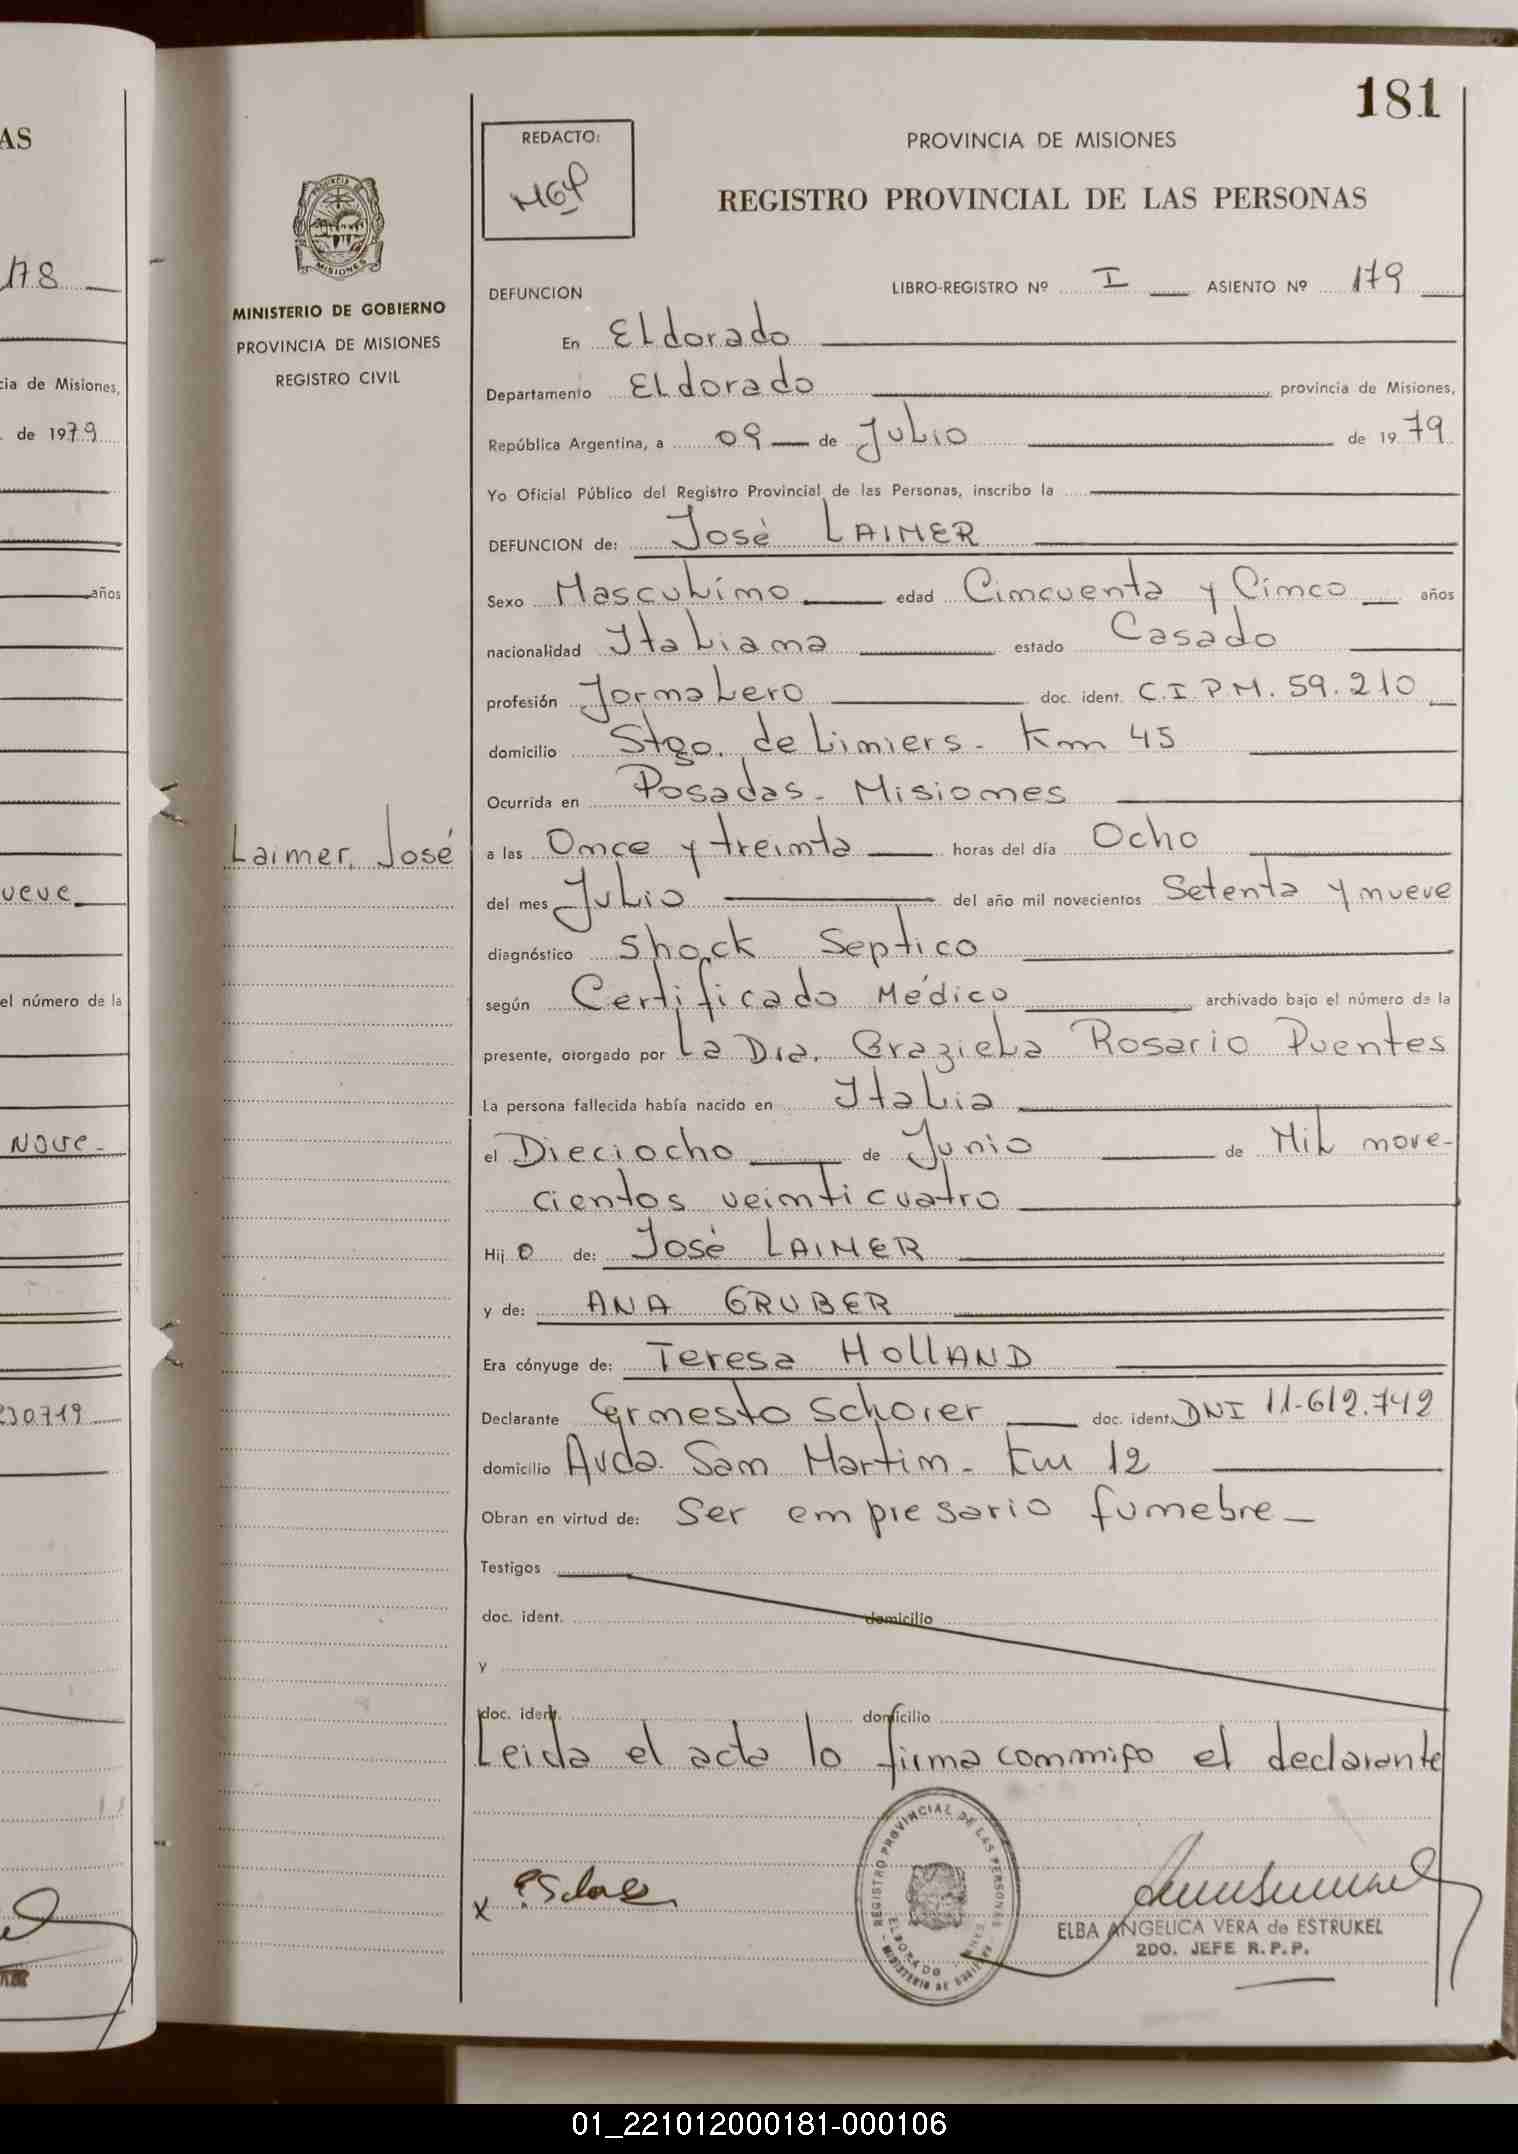 181
AS
178
cia de Misiones,
de 1979
años
ueve
el número de la
Nove-
230719
MINISTERIO DE GOBIERNO
PROVINCIA DE MISIONES
REGISTRO CIVIL
Laimer, José
REDACTO:
PROVINCIA DE MISIONES
REGISTRO PROVINCIAL DE LAS PERSONAS
DEFUNCION LIBRO-REGISTRO Nº I ASIENTO Nº 179
En Eldorado
Departamento Eldorado provincia de Misiones,
República Argentina, a 09 de Julio de 1979
Yo Oficial Público del Registro Provincial de las Personas, inscribo la
DEFUNCION de: José LAIMER
Sexo Masculino edad Cincuenta y Cinco años
nacionalidad Italiana estado Casado
profesión Jornalero doc. ident. C.I.P.M. 59.210
domicilio Stgo. de Liniers - Km 45
Ocurrida en Posadas - Misiones
a las Once y treinta horas del día Ocho
del mes Julio del año mil novecientos Setenta y nueve
diagnóstico Shock Septico
según Certificado Médico archivado bajo el número de la
presente, otorgado por La Dra. Graziela Rosario Puentes
La persona fallecida había nacido en Italia
el Dieciocho de Junio de Mil nove-
cientos veinticuatro
Hijo de: José LAIMER
y de: ANA GRUBER
Era cónyuge de: Teresa HOLLAND
Declarante Ernesto Schorer doc. ident. DNI 11.612.742
domicilio Avda. San Martin - Km 12
Obran en virtud de: Ser empresario funebre -
Testigos
doc. ident. domicilio
y
doc. ident. domicilio
Leida el acta lo firma conmigo el declarante
x
REGISTRO PROVINCIAL DE LAS PERSONAS
ELDORADO
MINISTERIO DE GOBIERNO
ELBA ANGELICA VERA de ESTRUKEL
2DO. JEFE R.P.P.
01_221012000181-000106